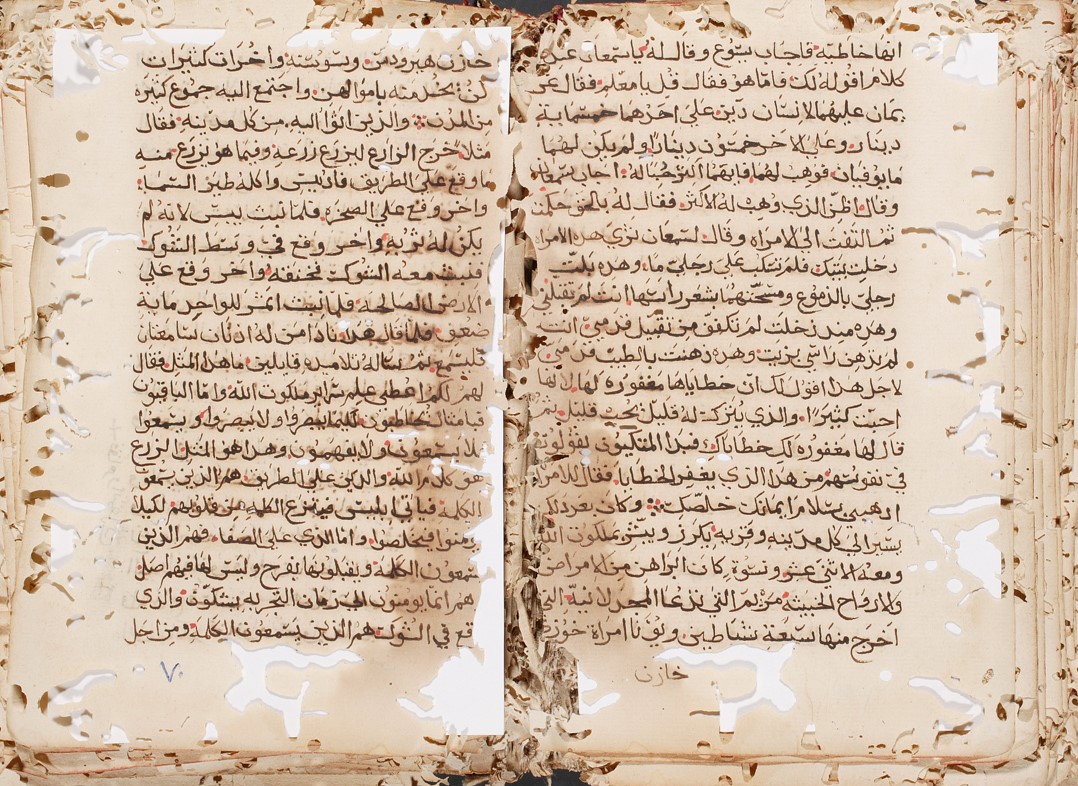 انها خاطيه فاجاب يسوع وقال له ياسمعان عندي
كلام اقوله لك فاما هو فقال قل يا معلم فقال غر
يمان عليهما لانسان دين على احدهما خمسمايه
دينار وعلى الاخر خمسون دينارا ولم يكن لهما
ما يوفيان فوهب لهما فايهما اكثر حبا له اجاب سمعان
وقال اظن الذي وهب له الاكثر فقال له بالحق حكمت
ثم التفت الى الامراه وقال لسمعان تري هذه الامراه
دخلت بيتك فلم تسكب على رجلي ماء وهذه بلت
رجلي بالدموع ومسحتهما بشعر راسها انت لم تقبلني
وهذه منذ دخلت لم تكفف من تقبيل قدمي انت
لم تدهن راسي بزيت وهذه دهنت بالطيب قدمي
لاجل هذا اقول لك ان خطاياها مغفوره لها لانها
احبت كثيرا والذي يترك له قليل يحب قليل ثم
قال لها مغفوره لك خطاياك فبدا المتكيون يقولون
في نفوسهم من هذا الذي يغفر الخطايا فقال للامراه
اذهبي بسلام ايمانك خلصك وكان بعد ذلك
يسير الى كل مدينه وقريه يكرز ويبشر بملكوت الله
ومعه الاثنى عشر ونسوة كان ابراهن من الامراض
والارواح الخبيثه مريم التي تدعا المجدلانيه التي
اخرج منها سبعة شياطين ويونا امراة خوزي
خازن
خازن هيرودس وسوسنه واخرات كثيرات
كن يخدمنه باموالهن واجتمع اليه جموع كثيره
من المدن والذين اتوا اليه من كل مدينه فقال
مثلا خرج الزارع ليزرع زرعه وفيما هو يزرع منه
ما وقع على الطريق فانديس واكله طير السما
واخر وقع على الصخره فلما نبت يبس لانه لم
يكن له تربه واخر وقع في وسط الشوك
فنبت معه الشوك فخنقه واخر وقع على
الارض الصالحه فلما نبت اثمر للواحد مايه
ضعف فلما قال هذا نادا من له اذنان سامعتان
فليسمع ثم ساله تلاميذه قايلين ما هذا المثل فقال
لهم لكم اعطي علم سراير ملكوت الله واما الباقون
فبامثال يخاطبون لكيما يبصروا ولا يبصروا ويسمعوا
فلا يسمعون ولا يفهمون وهذا هو المثل الزرع
هو كلام الله والذين على الطريق هم الذين يسمعون
الكلمه فياتي ابليس فينزع الكلمه من قلوبهم لكيلا
يومنوا فيخلصوا واما الذي على الصفا فهم الذين
يسمعون الكلمه ويقبلونها بفرح وليس لها فيهم اصل
هم انما يومنون الى زمان التجربه يشكون والذي
وقع في الشوك هم الذين يسمعون الكلمه ومن اجل
٧٠